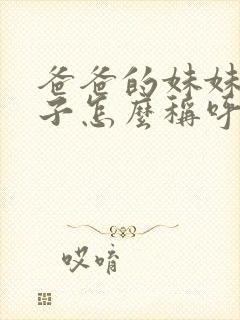 爸爸的妹妹
子怎麼稱呼
哎唷